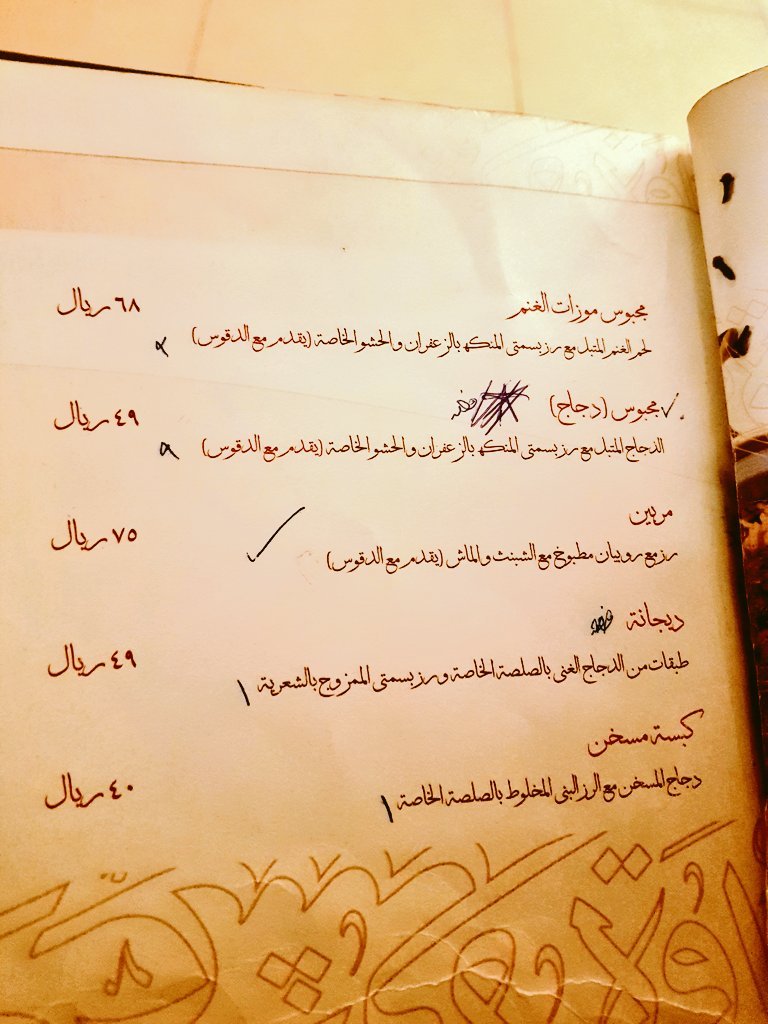 مجبوس موزات الغنم
٦٨ ريال
لحم الغنم المتبل مع رز بسمتي المنكه بالزعفران والحشو الخاصة (يقدم مع الدقوس)
مجبوس (دجاج)
٤٩ ريال
الدجاج المتبل مع رز بسمتي المنكه بالزعفران والحشو الخاصة (يقدم مع الدقوس)
٩
مربين
٧٥ ريال
رز مع روبيان مطبوخ مع الشبنث والماش (يقدم مع الدقوس)
ديجانة
٤٩ ريال
طبقات من الدجاج الغني بالصلصة الخاصة ورز بسمتي الممزوج بالشعرية
١
كبسة مسخن
٤٠ ريال
دجاج المسخن مع الرز البني المخلوط بالصلصة الخاصة
١